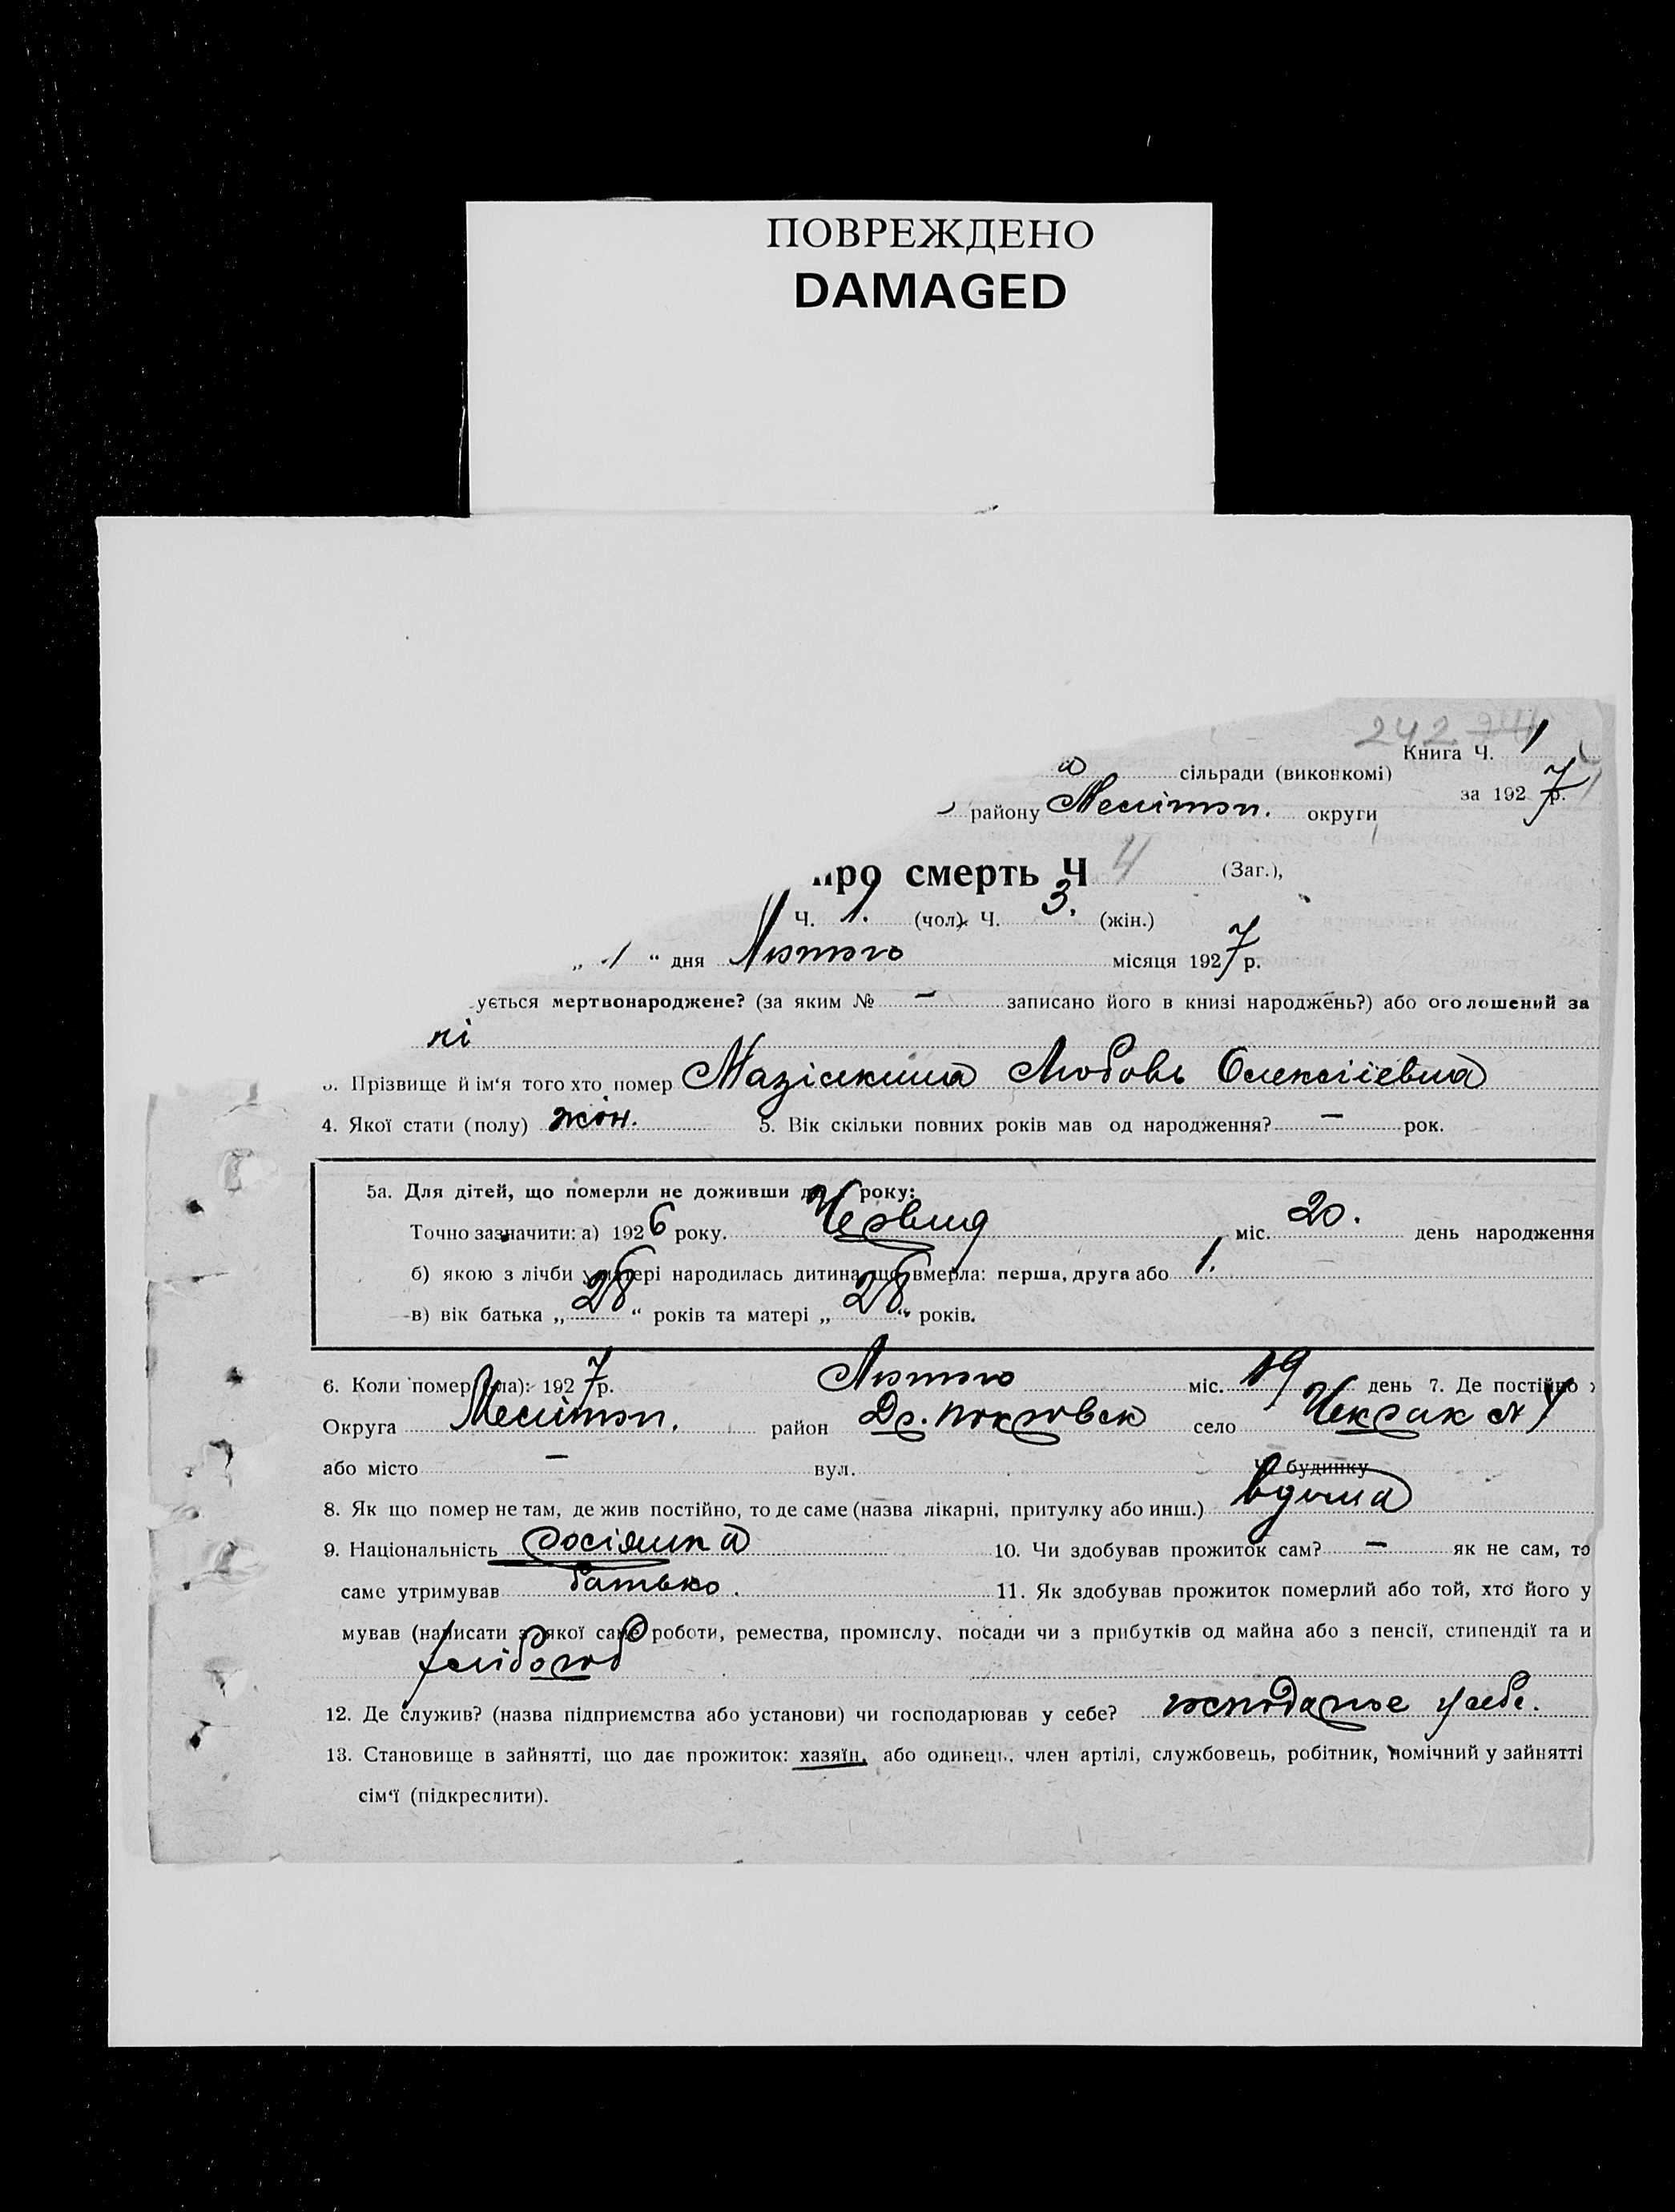 ПОВРЕЖДЕНО
DAMAGED
242
Книга Ч. 1
а сільради (виконкомі)
за 1927 р.
району Мелітоп. округи
про смерть Ч 4 (Заг.),
Ч. 1. (чол). Ч. 3. (жін.)
„ 1 “ дня Лютого місяця 1927 р.
ується мертвонароджене? (за яким № — записано його в книзі народжень?) або оголошений за
ні
3. Прізвище й ім‘я того хто помер Любовь Олексіієвна
4. Якої стати (полу) жін. 5. Вік скільки повних років мав од народження? — рок.
5а. Для дітей, що померли не доживши до року:
Точно зазначити: а) 1926 року. міс. 20. день народження
б) якою з лічби у матері народилась дитина, що вмерла: перша, друга або 1.
в) вік батька „ 28 “ років та матері „ 28 “ років.
6. Коли помер (ла): 1927 р. Лютого міс. 19 день 7. Де постійно
Округа Мелітоп. район село Чекрак № 1
або місто — вул. Ч. будинку
8. Як що помер не там, де жив постійно, то де саме (назва лікарні, притулку або инш.) вдома
9. Національність росіянка 10. Чи здобував прожиток сам? — як не сам, то
саме утримував батько. 11. Як здобував прожиток померлий або той, хто його у
мував (написати з якої саме роботи, ремества, промислу, посади чи з прибутків од майна або з пенсії, стипендії та и
хлібороб
12. Де служив? (назва підприємства або установи) чи господарював у себе? у себе.
13. Становище в зайнятті, що дає прожиток: хазяїн, або одинець, член артілі, службовець, робітник, помічний у зайнятті
сім‘ї (підкреслити).